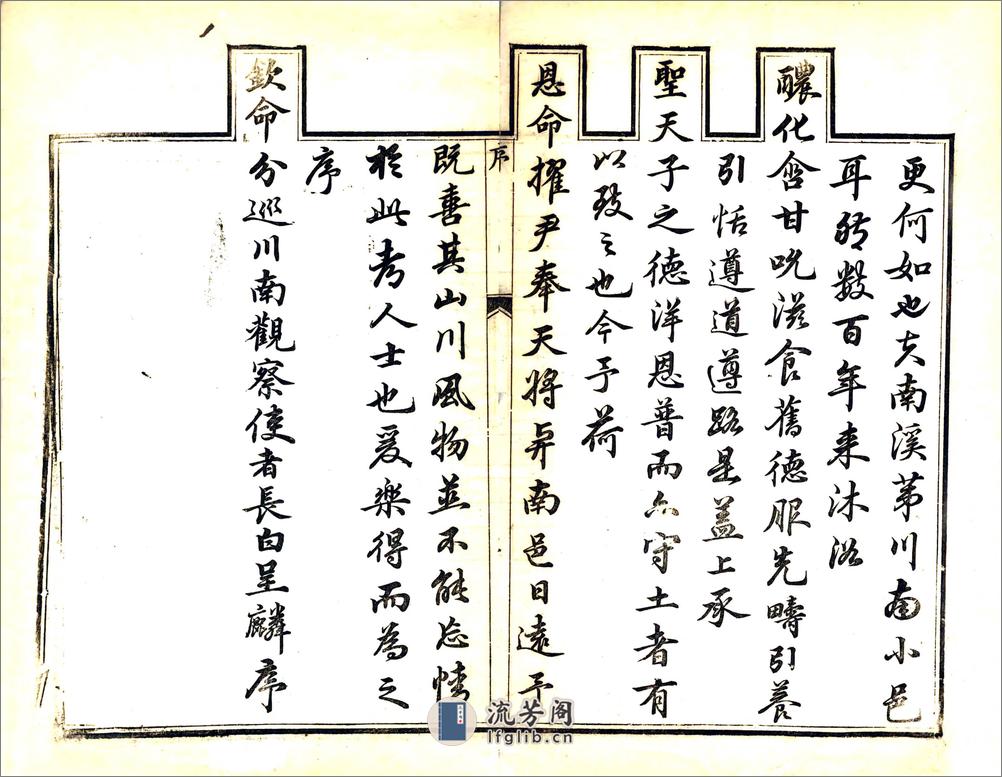 更何如也夫南溪苐川南小邑
耳然數百年来沐浴
醲化含甘吮滋食舊德服先疇引養
引恬遵道遵路是盖上承
聖天子之德洋恩普而亦守土者有
以致之也今予荷
恩命擢尹奉天將與南邑日遠予
序
既喜其山川風物並不能忘情
於此考人士也爰樂得而為之
序
欽命分巡川南觀察使者長白呈麟序
流芳阁
lfglib.cn